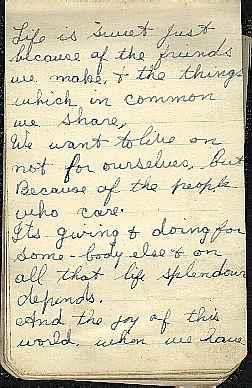 Life is sweet just
because of the friends
we make, & the things
which in common
we share,
We want to live on
not for ourselves, but
Because of the people
who care.
Its giving & doing for
some-body else & on
all that life splendour
depends.
And the joy of this
world, when we have